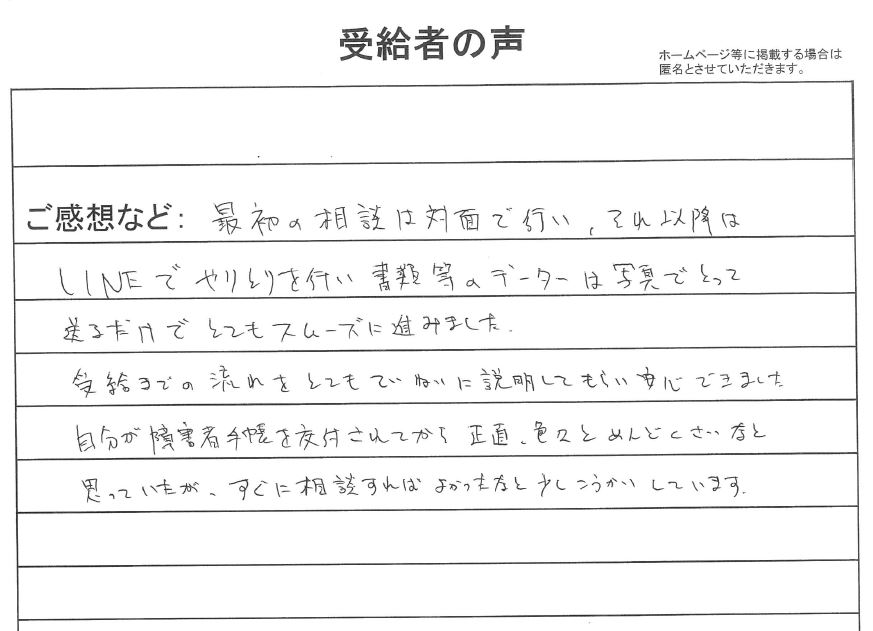 受給者の声
ホームページ等に掲載する場合は
匿名とさせていただきます。
ご感想など： 最初の相談は対面で行い、それ以降は
LINEでやりとりを行い書類等のデーターは写真でとって
送るだけでとてもスムーズに進みました。
受給までの流れをとてもていねいに説明してもらい安心できました
自分が障害者手帳を交付されてから正直、色々とめんどくさいなと
思っていたが、すぐに相談すればよかったなと少しこうかいしています。